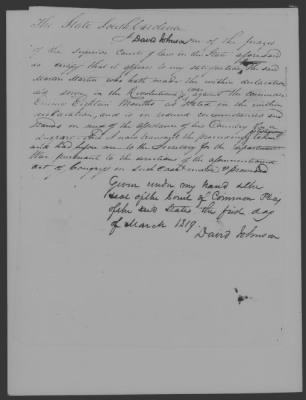 The State South Carolina
I David Johnson one of the Judges
of the Superior Courts of law in the State aforesaid
do certify that it appears to my satisfaction the said
Martin who hath made the within declaration
did serve in the Revolutionary war against the common
Enemy Eighteen Months as stated in the within
declaration, and is in reduced circumstances and
stands in need of the assistance of his Country for
support, and I now transmit the proceedings
and had before me to the Secretary for the Department
War pursuant to the directions of the aforementioned
act of Congress in such case made & provided
Given under my hand & the
Seal of the Court of Common Pleas
of the said State the first day
of March 1819
David Johnson